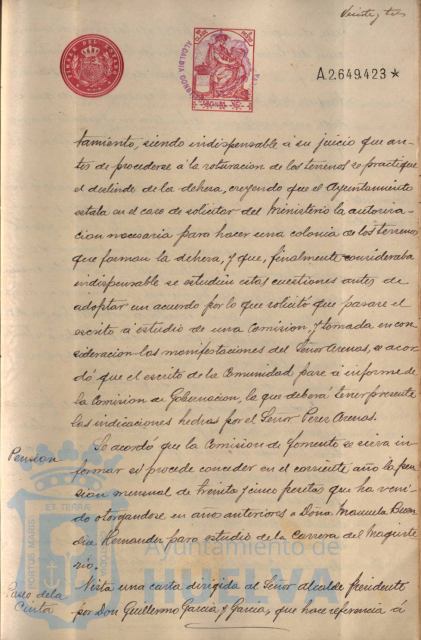 Veinte y tres
ALCALDIA CONSTI
A.2.649.423★
tamiento, siendo indispensable á su juicio que an-
tes de procederse á la roturacion de los terrenos se practique
el deslinde de la dehesa, creyendo que el Ayuntamiento
estaba en el caso de solicitar del Ministerio la autoriza-
cion necesaria para hacer una colonia de los terrenos
que forman la dehesa, y que, finalmente consideraba
indispensable se estudien estas cuestiones antes de
adoptar un acuerdo por lo que solicitó que pasase el
escrito á estudio de una Comision, y tomada en con-
sideracion las manifestaciones del Señor Arenas, se acor-
dó que el escrito de la Comunidad pase á informe de
la Comision de Gobernacion, la que deberá tener presente
las indicaciones hechas por el Señor Perez Arenas.
Pension
Se acordó que la Comision de fomento se sirva in-
formar si procede conceder en el corriente año la pen-
sion mensual de treinta y cinco pesetas que ha veni-
do otorgandose en años anteriores á Doña Manuela Buen
dia Hernandez para estudio de la Carrera del Magiste
rio.
Paseo de la
Cinta
Vista una carta dirigida al Señor alcalde Presidente
por Don Guillermo Garcia y Garcia, que hace referencia á
PORTUS MARIS
ET TERRAE
Ayuntamiento de
HUELVA